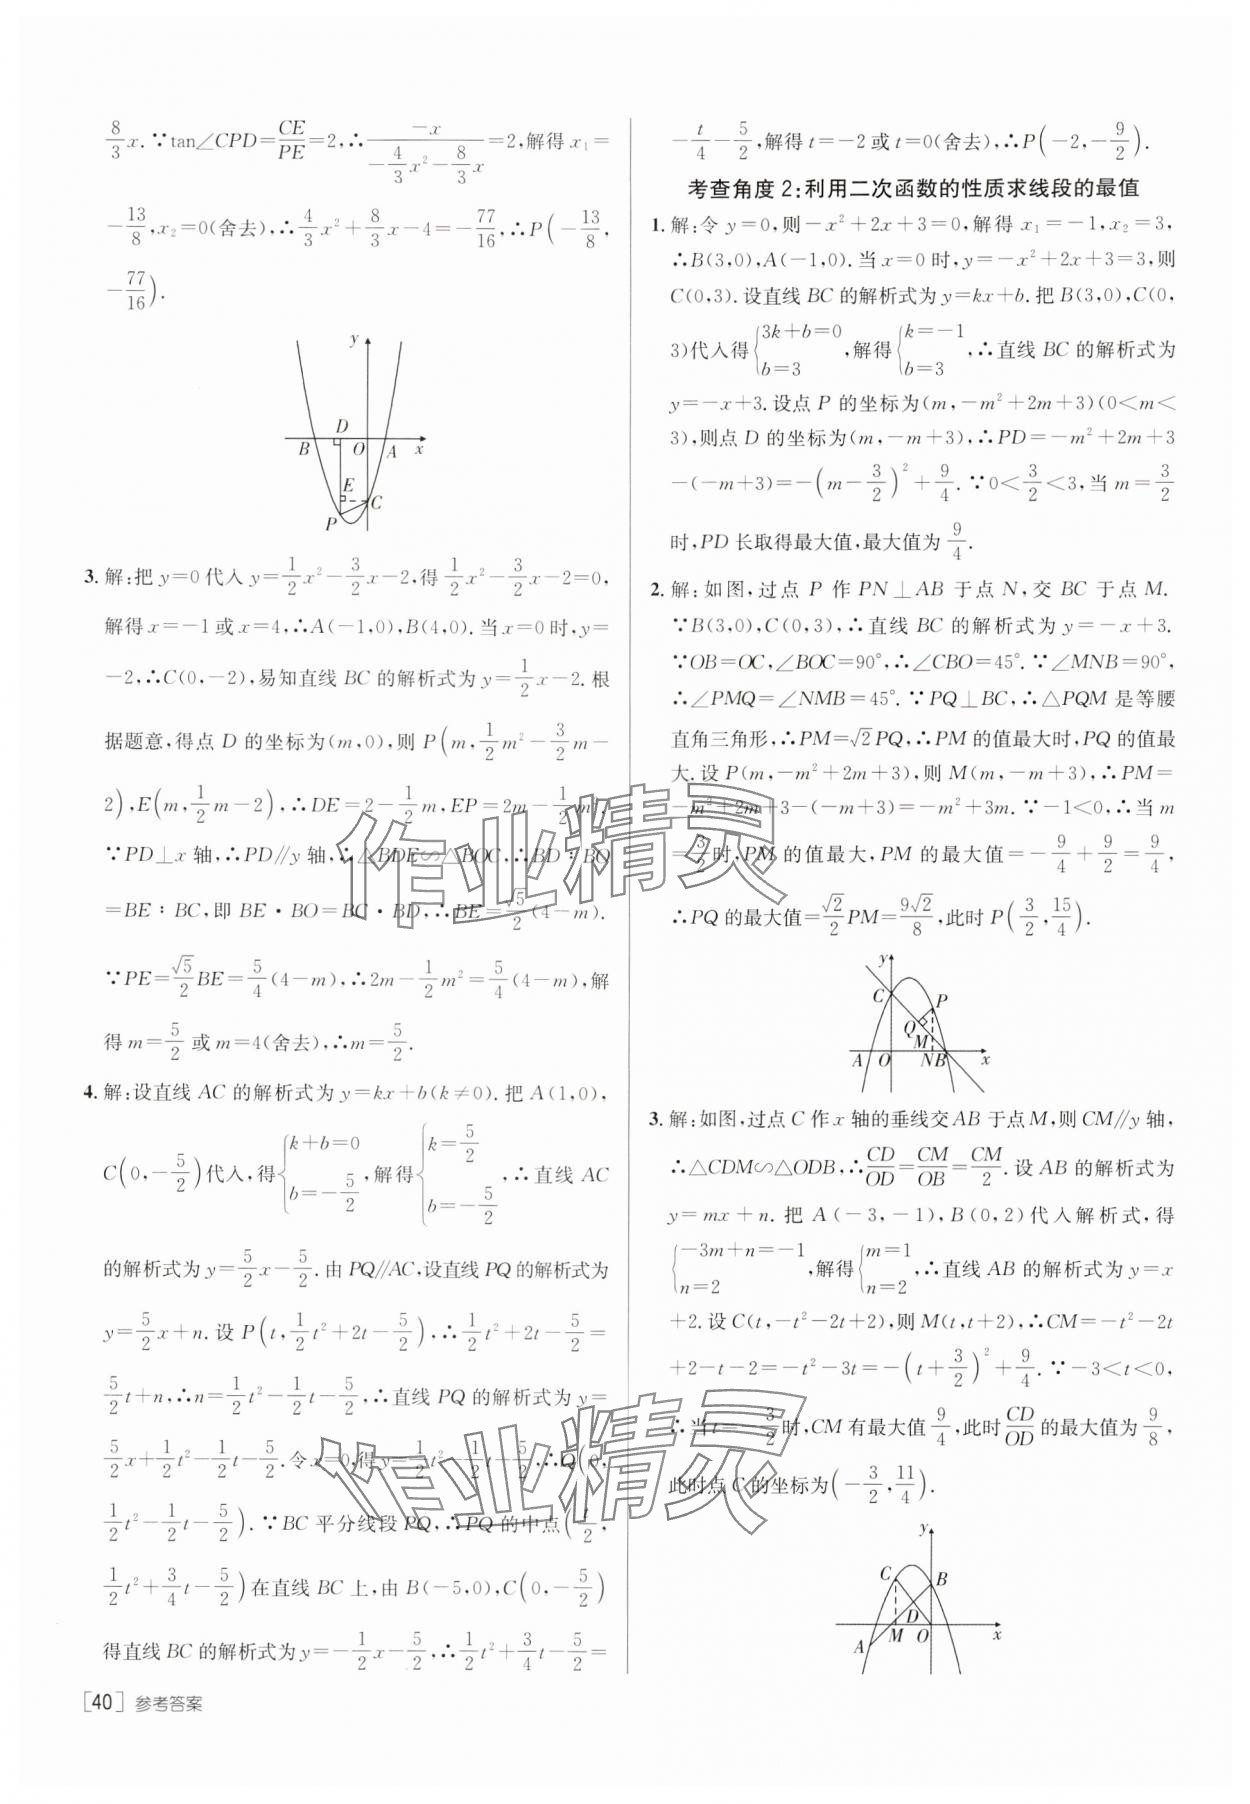 8/3 x.∵tan∠CPD=CE/PE=2,∴-x/(-4/3 x²-8/3 x)=2,解得 x₁=
-13/8,x₂=0(舍去),∴4/3 x²+8/3 x-4=-77/16,∴P(-13/8,
-77/16).
y
D
B O A x
E
C
P
3. 解:把 y=0 代入 y=1/2 x²-3/2 x-2,得 1/2 x²-3/2 x-2=0,
解得 x=-1 或 x=4,∴A(-1,0),B(4,0).当 x=0 时,y=
-2,∴C(0,-2),易知直线 BC 的解析式为 y=1/2 x-2.根
据题意,得点 D 的坐标为(m,0),则 P(m,1/2 m²-3/2 m-
2),E(m,1/2 m-2),∴DE=2-1/2 m,EP=2m-1/2
∵PD⊥x 轴,∴PD∥y 轴,∴△BDE∽△BOC,∴BD∶BO
=BE∶BC,即 BE·BO=BC·BD,∴BE=√5/2(4-m).
∵PE=√5/2 BE=5/4(4-m),∴2m-1/2 m²=5/4(4-m),解
得 m=5/2 或 m=4(舍去),∴m=5/2.
4. 解:设直线 AC 的解析式为 y=kx+b(k≠0).把 A(1,0),
C(0,-5/2)代入,得{k+b=0 b=-5/2,解得{k=5/2 b=-5/2,∴直线 AC
的解析式为 y=5/2 x-5/2.由 PQ∥AC,设直线 PQ 的解析式为
y=5/2 x+n.设 P(t,1/2 t²+2t-5/2),∴1/2 t²+2t-5/2=
5/2 t+n,∴n=1/2 t²-1/2 t-5/2,∴直线 PQ 的解析式为 y=
5/2 x+1/2 t²-1/2 t-5/2.令 x=0,得 y=1/2 t²-1/2 t-5/2,∴Q(0,
1/2 t²-1/2 t-5/2).∵BC 平分线段 PQ,∴PQ 的中点(t/2,
1/2 t²+3/4 t-5/2)在直线 BC 上,由 B(-5,0),C(0,-5/2)
得直线 BC 的解析式为 y=-1/2 x-5/2,∴1/2 t²+3/4 t-5/2=
[40] 参考答案
-t/4-5/2,解得 t=-2 或 t=0(舍去),∴P(-2,-9/2).
考查角度 2:利用二次函数的性质求线段的最值
1. 解:令 y=0,则-x²+2x+3=0,解得 x₁=-1,x₂=3,
∴B(3,0),A(-1,0).当 x=0 时,y=-x²+2x+3=3,则
C(0,3).设直线 BC 的解析式为 y=kx+b.把 B(3,0),C(0,
3)代入得{3k+b=0 b=3,解得{k=-1 b=3,∴直线 BC 的解析式为
y=-x+3.设点 P 的坐标为(m,-m²+2m+3)(0<m<
3),则点 D 的坐标为(m,-m+3),∴PD=-m²+2m+3
-(-m+3)=-(m-3/2)²+9/4.∵0<3/2<3,当 m=3/2
时,PD 长取得最大值,最大值为 9/4.
2. 解:如图,过点 P 作 PN⊥AB 于点 N,交 BC 于点 M.
∵B(3,0),C(0,3),∴直线 BC 的解析式为 y=-x+3.
∵OB=OC,∠BOC=90°,∴∠CBO=45°.∵∠MNB=90°,
∴∠PMQ=∠NMB=45°.∵PQ⊥BC,∴△PQM 是等腰
直角三角形,∴PM=√2PQ,∴PM 的值最大时,PQ 的值最
大.设 P(m,-m²+2m+3),则 M(m,-m+3),∴PM=
-m²+2m+3-(-m+3)=-m²+3m.∵-1<0,∴当 m
=3/2时,PM 的值最大,PM 的最大值=-9/4+9/2=9/4,
∴PQ 的最大值=√2/2 PM=9√2/8,此时 P(3/2,15/4).
y
C P
Q
M
A O NB x
3. 解:如图,过点 C 作 x 轴的垂线交 AB 于点 M,则 CM∥y 轴,
∴△CDM∽△ODB,∴CD/OD=CM/OB=CM/2.设 AB 的解析式为
y=mx+n.把 A(-3,-1),B(0,2)代入解析式,得
{-3m+n=-1 n=2,解得{m=1 n=2,∴直线 AB 的解析式为 y=x
+2.设 C(t,-t²-2t+2),则 M(t,t+2),∴CM=-t²-2t
+2-t-2=-t²-3t=-(t+3/2)²+9/4.∵-3<t<0,
∴当 t=-3/2时,CM 有最大值 9/4,此时 CD/OD 的最大值为 9/8,
此时点 C 的坐标为(-3/2,11/4).
y
C B
D
M O x
A
作业精灵
作业精灵